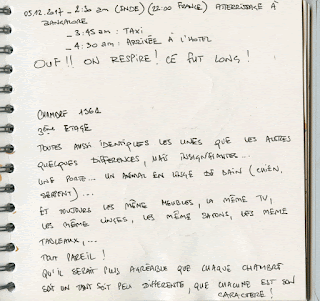 05.12.2017 - 2:30 am (INDE) (22:00 FRANCE) ATTERRISSAGE À
BANGALORE
- 3:45 am : TAXI
- 4:30 am : ARRIVÉE À L'HOTEL
OUF !! ON RESPIRE ! CE FUT LONG !
CHAMBRE 1361
3ème ETAGE
TOUTES AUSSI IDENTIQUES LES UNES QUE LES AUTRES
QUELQUES DIFFÉRENCES, MAIS INSIGNIFIANTES...
UNE PORTE... UN ANIMAL EN LINGE DE BAIN (CHIEN,
SERPENT)....
ET TOUJOURS LES MÊME MEUBLES, LA MÊME TV,
LES MÊME LINGES, LES MÊME SAVONS, LES MÊME
TABLEAUX, ...
TOUT PAREIL !
QU'IL SERAIT PLUS AGRÉABLE QUE CHAQUE CHAMBRE
SOIT UN TANT SOIT PEU DIFFÉRENTE, QUE CHACUNE EST SON
CARACTÈRE !